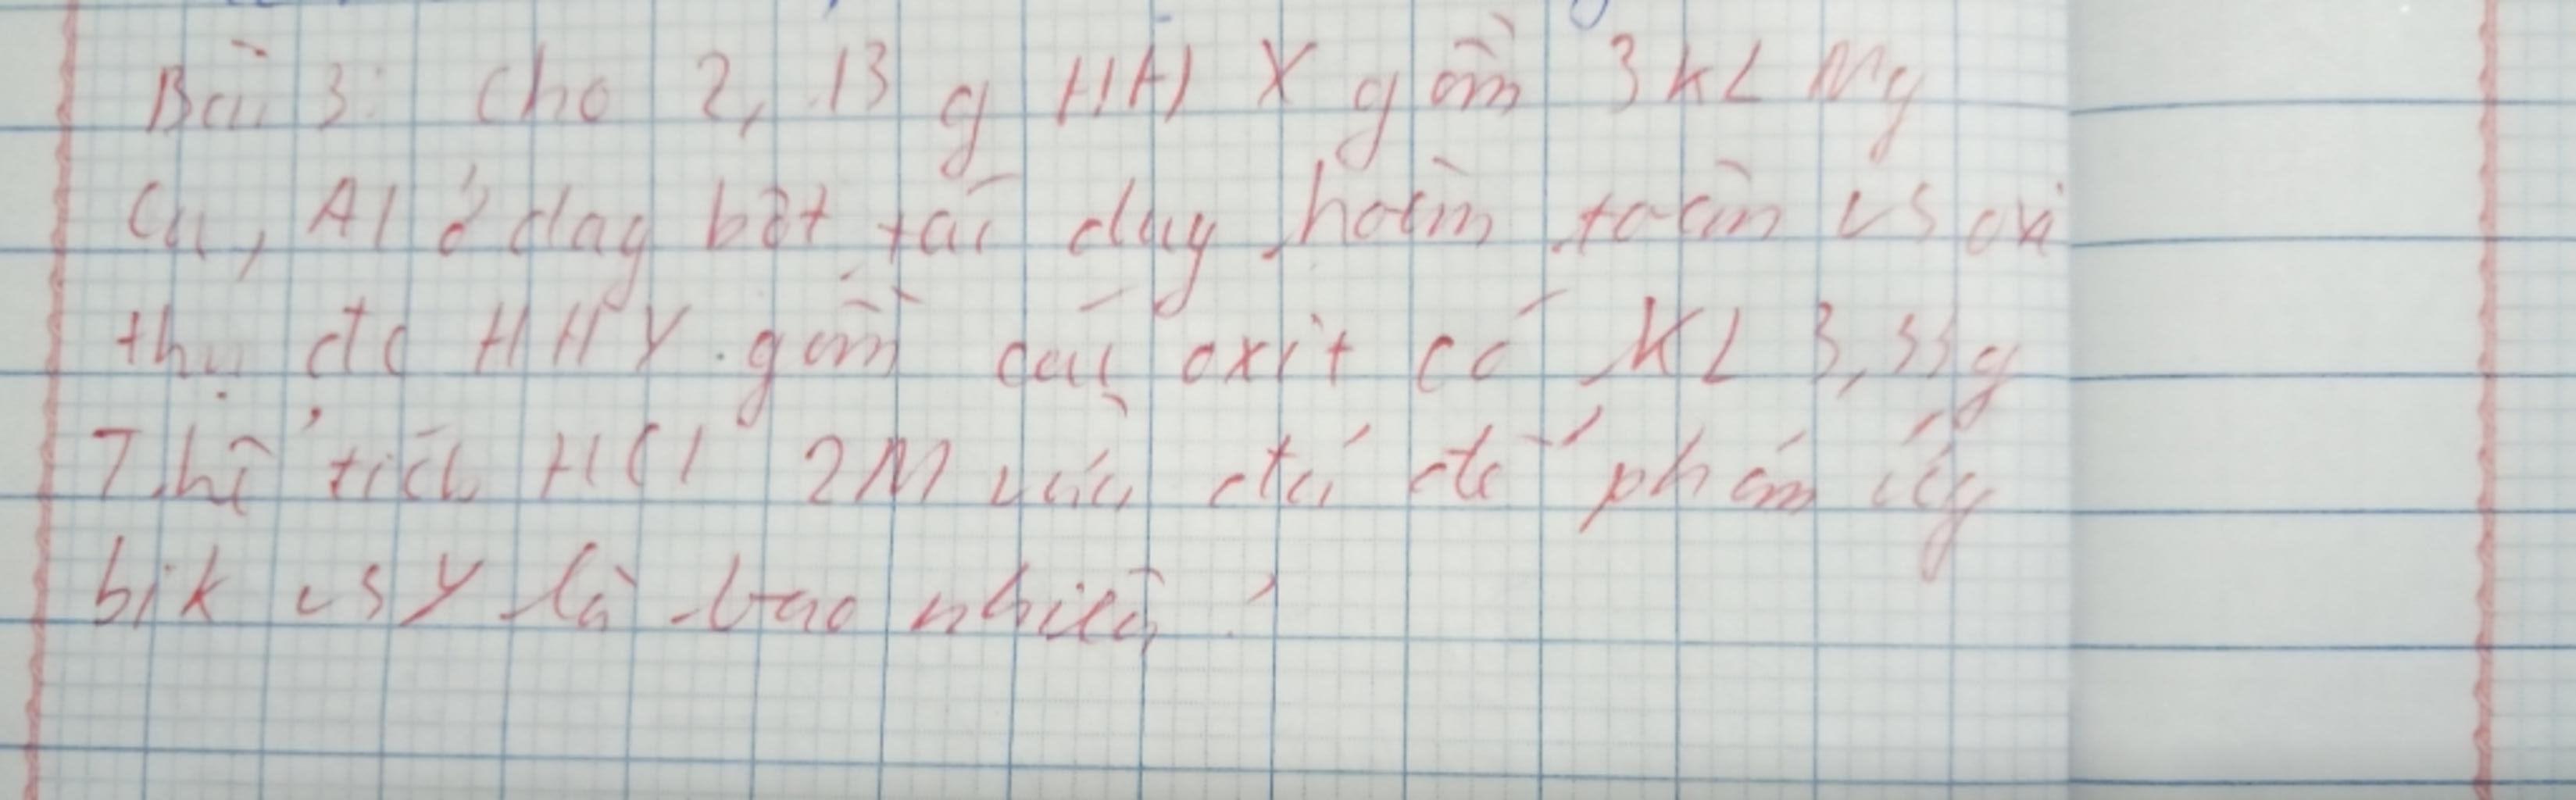 Bài 3: Cho 2,13 g HH X gồm 3 KL Mg
Cu, Al ở dag bột tác dụg hoàn toàn vs oxi
thu đc HH Y gồm các oxit có KL 3,33g
Thể tích HCl 2M vừa đủ để phản ứg
hết vs Y là bao nhiêu?